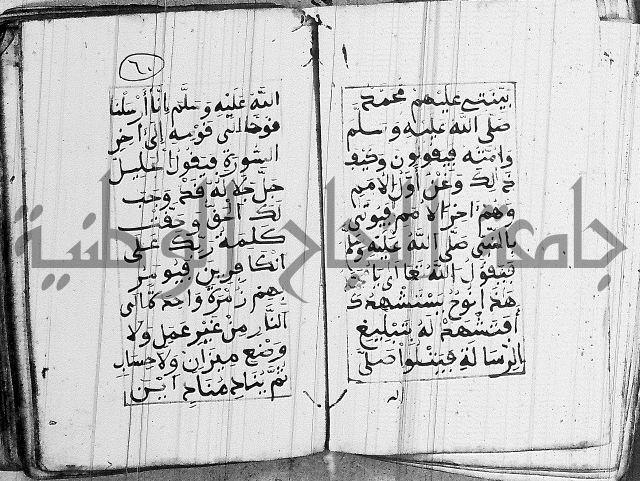 بينتي عليهم محمد
صلى الله عليه وسلم
وامته فيقولون وكيف
ذلك ونحن اول الامم
وهم اخر الامم فيوتى
بالنبي صلى الله عليه وسلم
فيقول الله تعالى يا محمد
هذا نوح يستشهدك
افتشهد له بتبليغ
الرسالة فيتلوا صلى
٦٠
الله عليه وسلم انا أرسلنا
نوحا الى قومه إلى آخر
السورة فيقول الجليل
جل جلاله قد وجب
لك الحق وحقت
كلمة ربك على
الكافرين فيومر
بهم زمرة واحدة الى
النار من غير عمل ولا
وضع ميزان ولا حساب
ثم يناد مناد اين
جامعة النجاح الوطنية